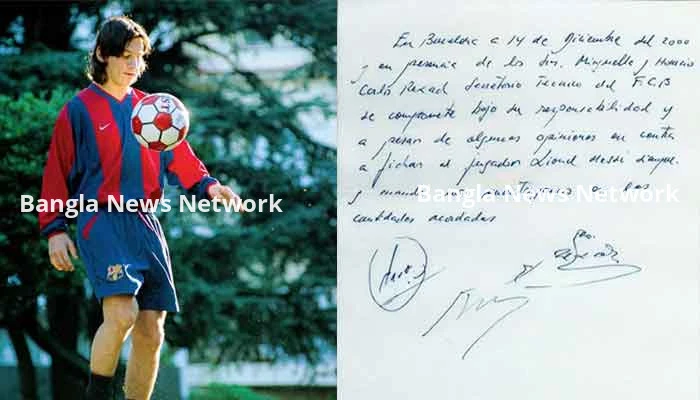 En Barcelona a 14 de Diciembre del 2000
y en presencia de los Srs. Minguella y Horacio
Carlos Rexach Secretario Técnico del F.C.B
se compromete bajo su responsabilidad y
a pesar de algunas opiniones en contra
a fichar al jugador Lionel Messi siempre
y cuando a las
cantidades acordadas
Bangla News Network
Bangla News Network